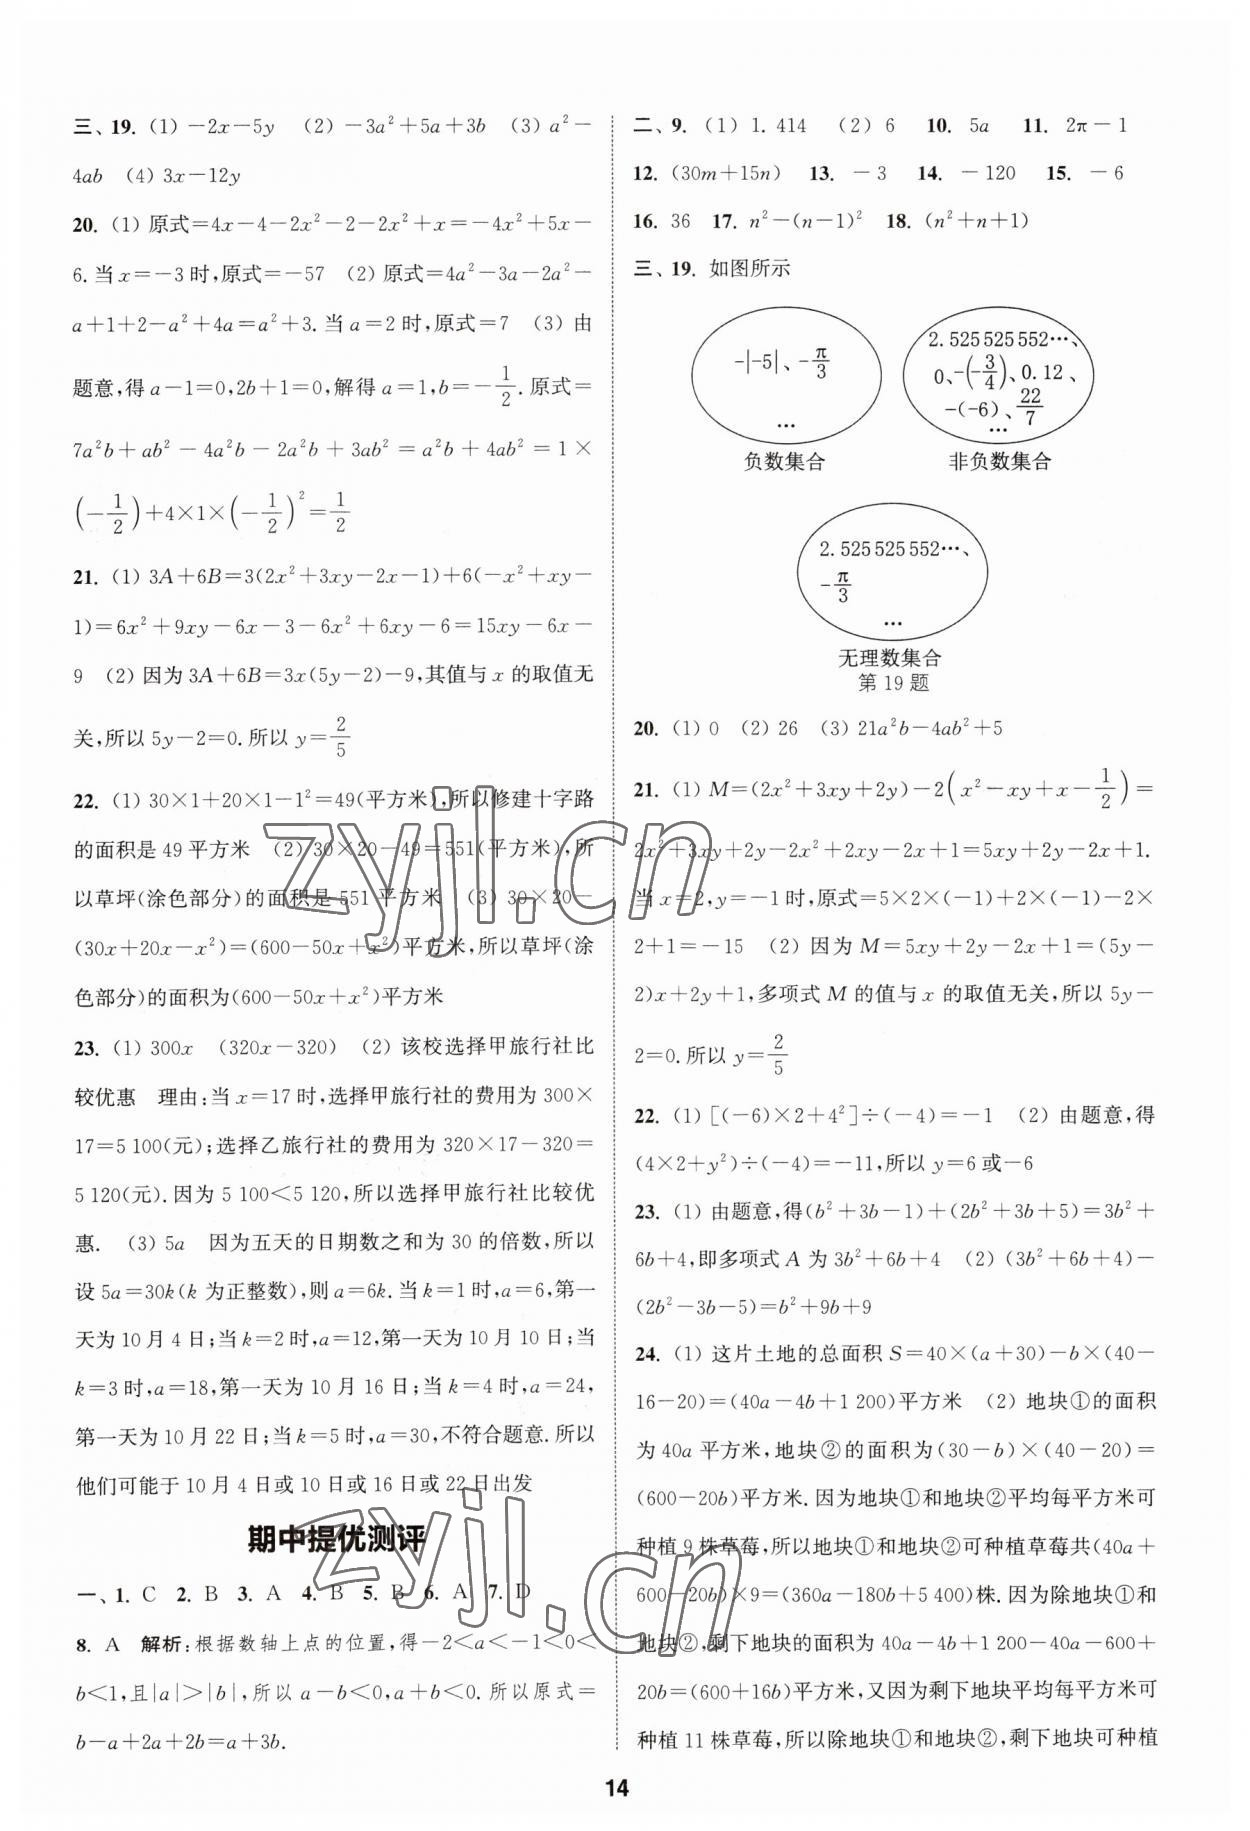 三、19. (1) －2x－5y　(2) －3a²＋5a＋3b　(3) a²－
4ab　(4) 3x－12y
20. (1) 原式＝4x－4－2x²－2－2x²＋x＝－4x²＋5x－
6.当x＝－3时,原式＝－57　(2) 原式＝4a²－3a－2a²－
a＋1＋2－a²＋4a＝a²＋3. 当a＝2时,原式＝7　(3) 由
题意,得a－1＝0,2b＋1＝0,解得a＝1,b＝－1/2.原式＝
7a²b＋ab²－4a²b－2a²b＋3ab²＝a²b＋4ab²＝1×
(－1/2)＋4×1×(－1/2)²＝1/2
21. (1) 3A＋6B＝3(2x²＋3xy－2x－1)＋6(－x²＋xy－
1)＝6x²＋9xy－6x－3－6x²＋6xy－6＝15xy－6x－
9　(2) 因为3A＋6B＝3x(5y－2)－9,其值与x的取值无
关,所以5y－2＝0.所以y＝2/5
22. (1) 30×1＋20×1－1²＝49(平方米),所以修建十字路
的面积是49平方米　(2) 30×20－49＝551(平方米),所
以草坪(涂色部分)的面积是551平方米　(3) 30×20－
(30x＋20x－x²)＝(600－50x＋x²)平方米,所以草坪(涂
色部分)的面积为(600－50x＋x²)平方米
23. (1) 300x　(320x－320)　(2) 该校选择甲旅行社比
较优惠　理由:当x＝17时,选择甲旅行社的费用为300×
17＝5 100(元);选择乙旅行社的费用为320×17－320＝
5 120(元).因为5 100＜5 120,所以选择甲旅行社比较优
惠.　(3) 5a　因为五天的日期数之和为30的倍数,所以
设5a＝30k(k为正整数),则a＝6k.当k＝1时,a＝6,第一
天为10月4日;当k＝2时,a＝12,第一天为10月10日;当
k＝3时,a＝18,第一天为10月16日;当k＝4时,a＝24,
第一天为10月22日;当k＝5时,a＝30,不符合题意.所以
他们可能于10月4日或10日或16日或22日出发
期中提优测评
一、1. C　2. B　3. A　4. B　5. B　6. A　7. D
8. A　解析:根据数轴上点的位置,得－2＜a＜－1＜0＜
b＜1,且|a|＞|b|,所以a－b＜0,a＋b＜0.所以原式＝
b－a＋2a＋2b＝a＋3b.
二、9. (1) 1. 414　(2) 6　10. 5a　11. 2π－1
12. (30m＋15n)　13. －3　14. －120　15. －6
16. 36　17. n²－(n－1)²　18. (n²＋n＋1)
三、19. 如图所示
-|-5|、-π/3
…
负数集合
2. 525 525 552…、
0、-(-3/4)、0. 12、
-(-6)、22/7
…
非负数集合
2. 525 525 552…、
-π/3
…
无理数集合
第19题
20. (1) 0　(2) 26　(3) 21a²b－4ab²＋5
21. (1) M＝(2x²＋3xy＋2y)－2(x²－xy＋x－1/2)＝
2x²＋3xy＋2y－2x²＋2xy－2x＋1＝5xy＋2y－2x＋1.
当x＝2,y＝－1时,原式＝5×2×(－1)＋2×(－1)－2×
2＋1＝－15　(2) 因为M＝5xy＋2y－2x＋1＝(5y－
2)x＋2y＋1,多项式M的值与x的取值无关,所以5y－
2＝0.所以y＝2/5
22. (1) [(－6)×2＋4²]÷(－4)＝－1　(2) 由题意,得
(4×2＋y²)÷(－4)＝－11,所以y＝6或－6
23. (1) 由题意,得(b²＋3b－1)＋(2b²＋3b＋5)＝3b²＋
6b＋4,即多项式A为3b²＋6b＋4　(2) (3b²＋6b＋4)－
(2b²－3b－5)＝b²＋9b＋9
24. (1) 这片土地的总面积S＝40×(a＋30)－b×(40－
16－20)＝(40a－4b＋1 200)平方米　(2) 地块①的面积
为40a平方米,地块②的面积为(30－b)×(40－20)＝
(600－20b)平方米.因为地块①和地块②平均每平方米可
种植9株草莓,所以地块①和地块②可种植草莓共(40a＋
600－20b)×9＝(360a－180b＋5 400)株.因为除地块①和
地块②,剩下地块的面积为40a－4b＋1 200－40a－600＋
20b＝(600＋16b)平方米,又因为剩下地块平均每平方米可
种植11株草莓,所以除地块①和地块②,剩下地块可种植
14
zyjl.cn
zyjl.cn